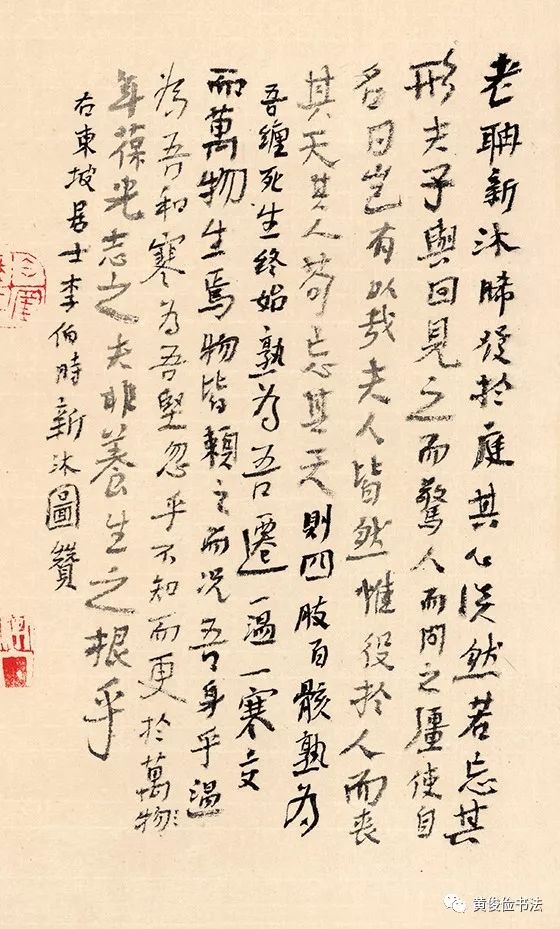 老聃新沐晞发於庭其心淡然若忘其
形夫子與回見之而驚人而問之彊使自
名曰岂有以哉夫人皆然惟役於人而丧
其天其人苟忘其天則四肢百骸孰為
吾纏死生終始孰為吾遷一温一寒交
而萬物生焉物皆賴之而况吾身乎温
為吾和寒為吾堅忽乎不知而更於萬物
年葆光志之夫非養生之根乎
右東坡居士李伯時新沐圖贊
黄俊俭书法